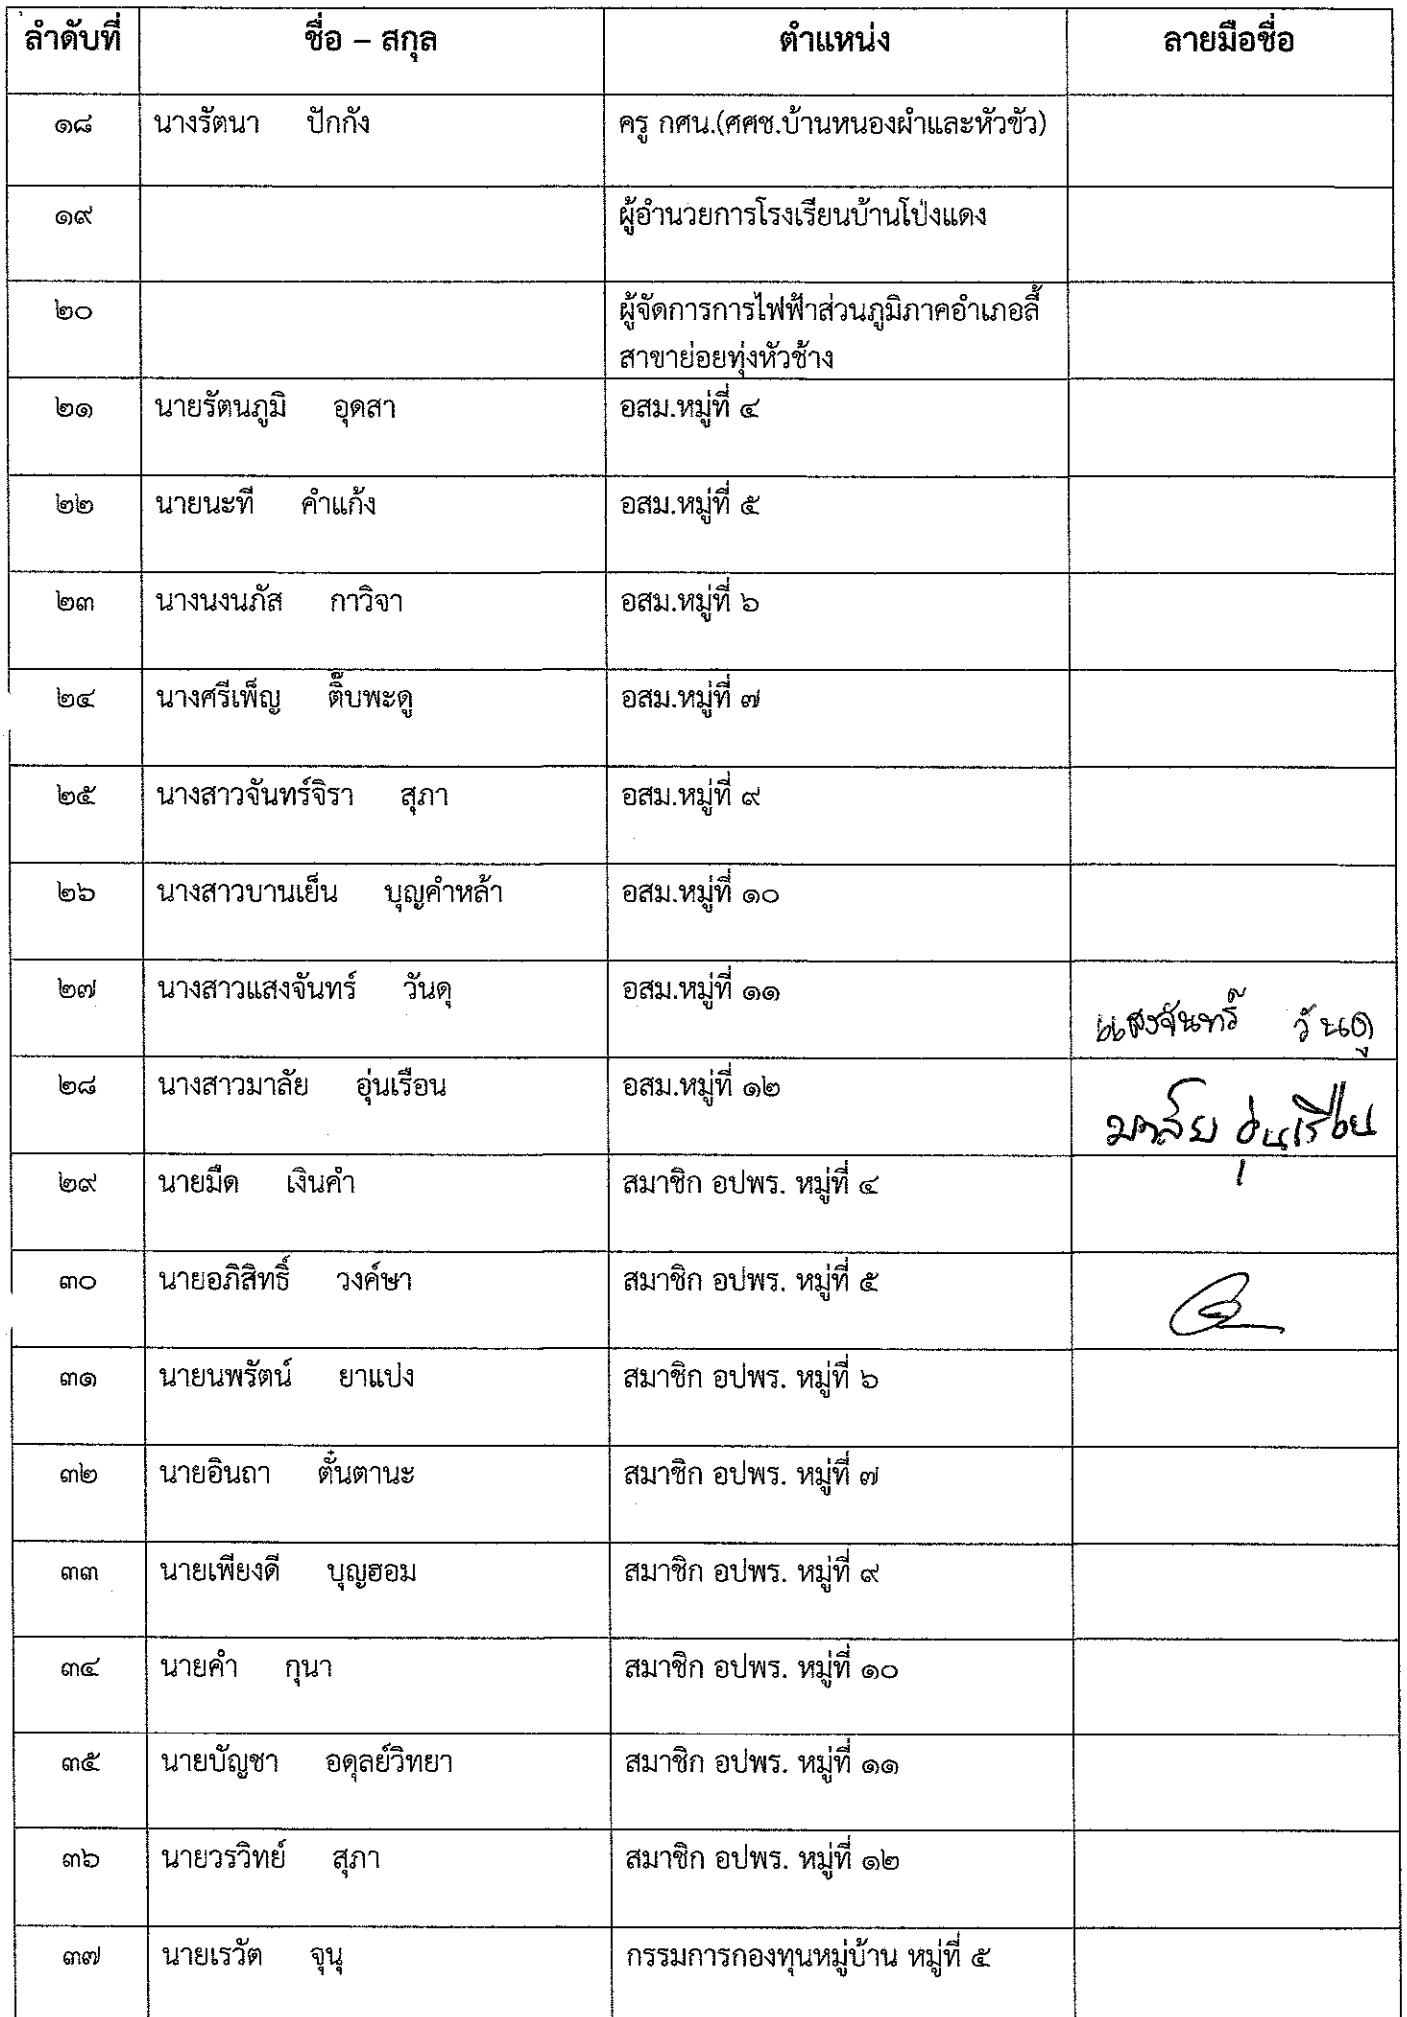 ลำดับที่ ชื่อ – สกุล ตำแหน่ง ลายมือชื่อ
๑๘ นางรัตนา ปักกัง ครู กศน.(ศศช.บ้านหนองผำและหัวขัว)
๑๙ ผู้อำนวยการโรงเรียนบ้านโป่งแดง
๒๐ ผู้จัดการการไฟฟ้าส่วนภูมิภาคอำเภอลี้
สาขาย่อยทุ่งหัวช้าง
๒๑ นายรัตนภูมิ อุดสา อสม.หมู่ที่ ๔
๒๒ นายนะที คำแก้ง อสม.หมู่ที่ ๕
๒๓ นางนงนภัส กาวิจา อสม.หมู่ที่ ๖
๒๔ นางศรีเพ็ญ ติ๊บพะดู อสม.หมู่ที่ ๗
๒๕ นางสาวจันทร์จิรา สุภา อสม.หมู่ที่ ๙
๒๖ นางสาวบานเย็น บุญคำหล้า อสม.หมู่ที่ ๑๐
๒๗ นางสาวแสงจันทร์ วันดุ อสม.หมู่ที่ ๑๑ แสงจันทร์ วันดุ
๒๘ นางสาวมาลัย อุ่นเรือน อสม.หมู่ที่ ๑๒ มาลัย อุ่นเรือน
๒๙ นายมืด เงินคำ สมาชิก อปพร. หมู่ที่ ๔
๓๐ นายอภิสิทธิ์ วงค์ษา สมาชิก อปพร. หมู่ที่ ๕
๓๑ นายนพรัตน์ ยาแปง สมาชิก อปพร. หมู่ที่ ๖
๓๒ นายอินถา ตั๋นตานะ สมาชิก อปพร. หมู่ที่ ๗
๓๓ นายเพียงดี บุญฮอม สมาชิก อปพร. หมู่ที่ ๙
๓๔ นายคำ กุนา สมาชิก อปพร. หมู่ที่ ๑๐
๓๕ นายบัญชา อดุลย์วิทยา สมาชิก อปพร. หมู่ที่ ๑๑
๓๖ นายวรวิทย์ สุภา สมาชิก อปพร. หมู่ที่ ๑๒
๓๗ นายเรวัต จุนุ กรรมการกองทุนหมู่บ้าน หมู่ที่ ๕